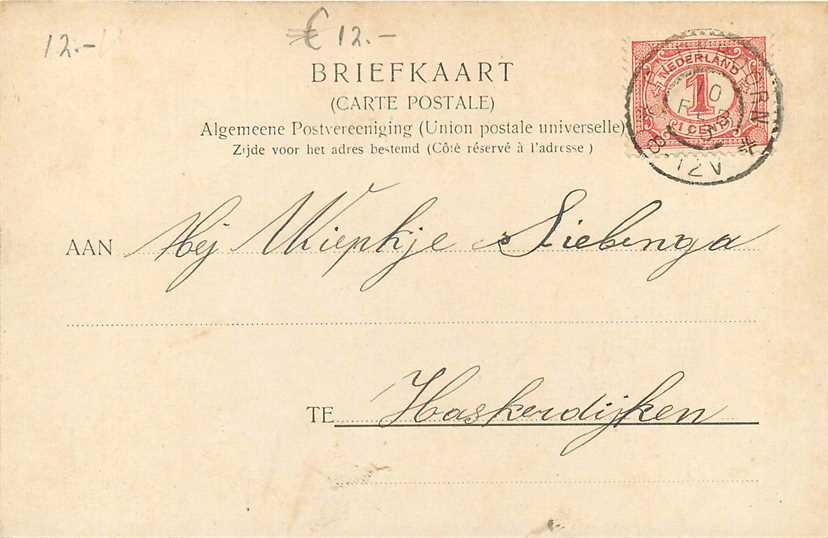 12.-
€ 12.-
BRIEFKAART
(CARTE POSTALE)
Algemeene Postvereeniging (Union postale universelle)
Zijde voor het adres bestemd (Côté réservé à l'adresse)
NEDERLAND
1
1 CENT
12V
AAN Mej Wiepkje Siebenga
TE Haskerdijken